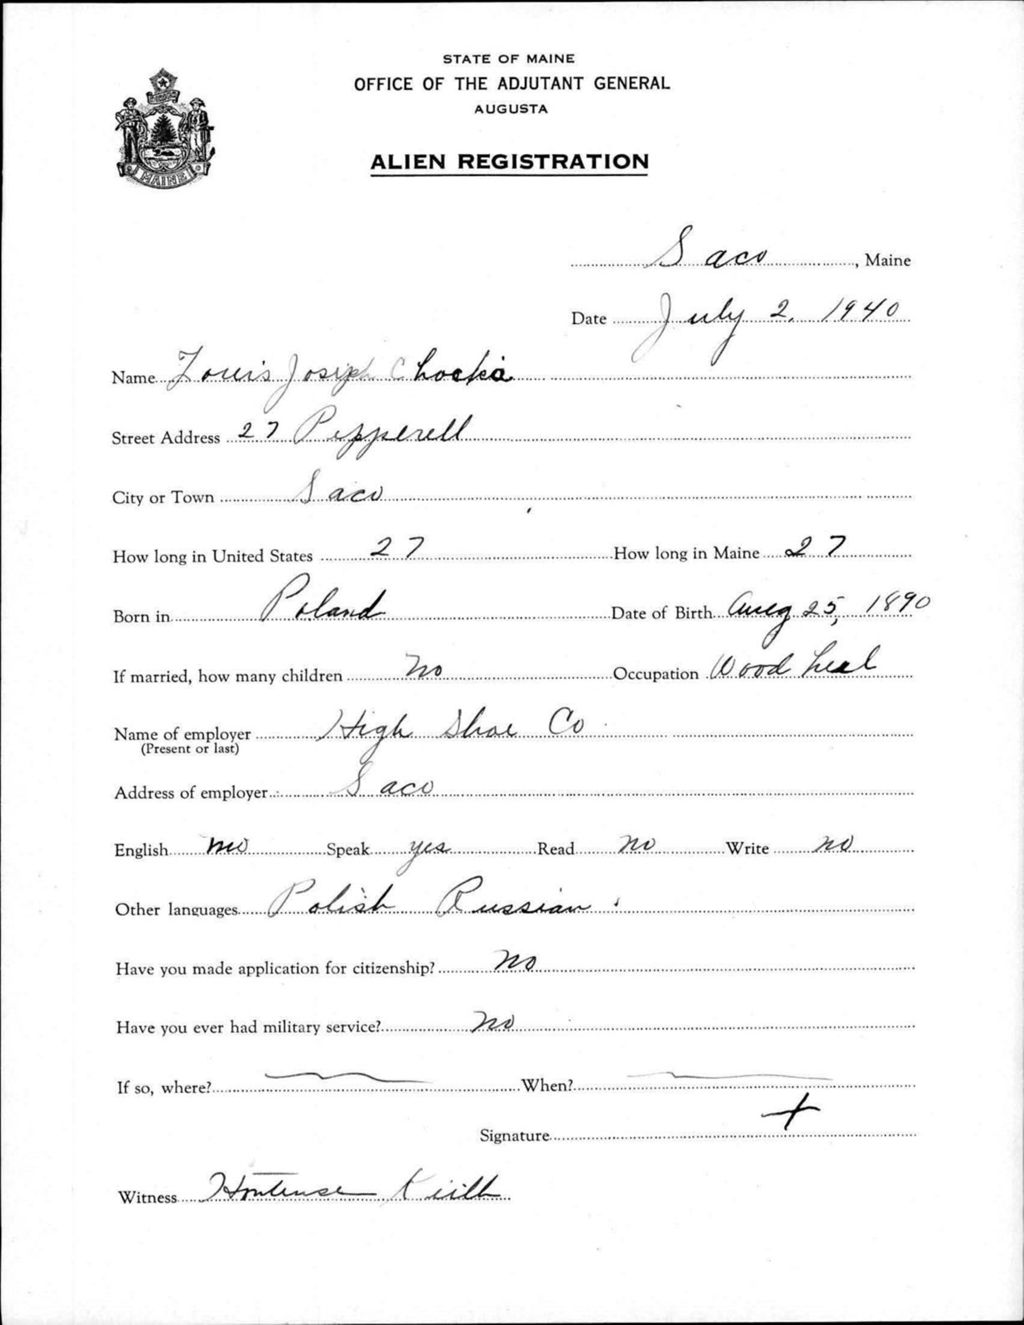 STATE OF MAINE
OFFICE OF THE ADJUTANT GENERAL
AUGUSTA
ALIEN REGISTRATION
MAINE
Saco, Maine
Date July 2, 1940
Name Louis Joseph Chocka
Street Address 27 Pepperell
City or Town Saco
How long in United States 27 How long in Maine 27
Born in Poland Date of Birth Aug 25, 1890
If married, how many children No Occupation Wood heel
Name of employer High Shoe Co
(Present or last)
Address of employer Saco
English no Speak yes Read no Write no
Other languages Polish Russian
Have you made application for citizenship? No
Have you ever had military service? No
If so, where? When?
Signature X
Witness Hortense